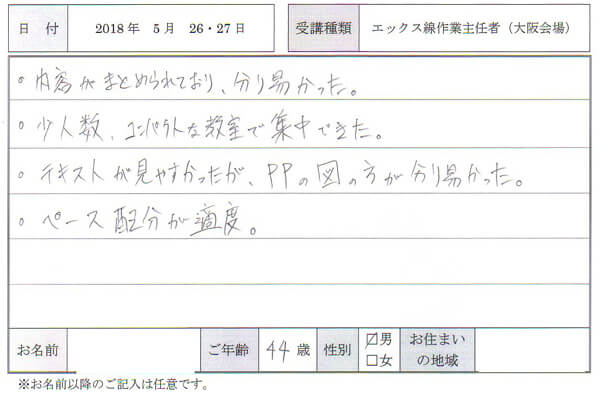 日 付 2018年 5月 26・27日 受講種類 エックス線作業主任者（大阪会場）
。内容がまとめられており、分り易かった。
。少人数、コンパクトな教室で集中できた。
。テキストが見やすかったが、PPの図の方が分り易かった。
。ペース配分が適度。
お名前 ご年齢 44歳 性別 ☑男 □女 お住まいの地域
※お名前以降のご記入は任意です。